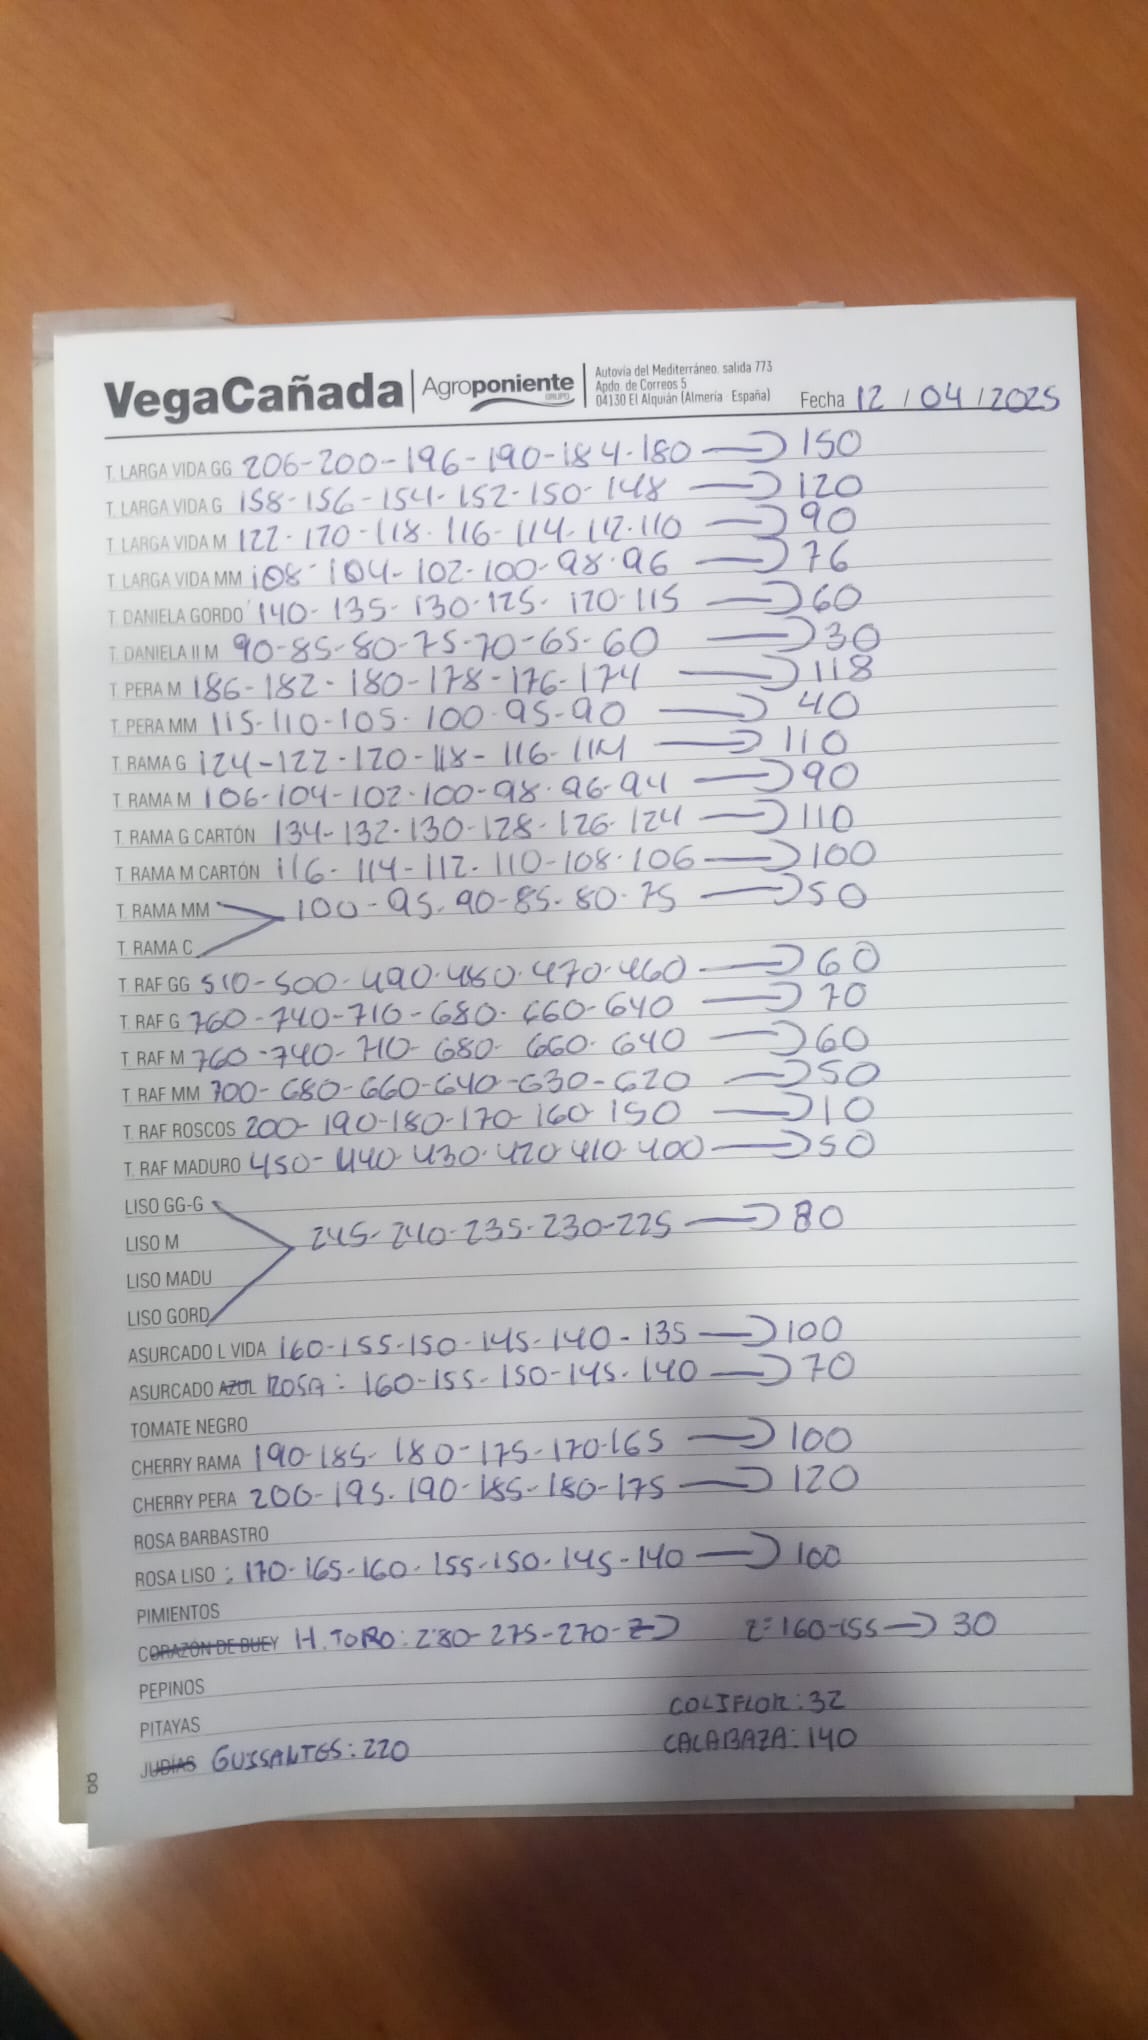 VegaCañada | Agroponiente GRUPO
Autovía del Mediterráneo. salida 773
Apdo. de Correos 5
04130 El Alquián (Almería España)
Fecha 12 / 04 / 2025
T. LARGA VIDA GG 206-200-196-190-184-180 → 150
T. LARGA VIDA G 158-156-154-152-150-148 → 120
T. LARGA VIDA M 122-120-118-116-114-112-110 → 90
T. LARGA VIDA MM 108-104-102-100-98-96 → 76
T. DANIELA GORDO 140-135-130-125-120-115 → 60
T. DANIELA II M 90-85-80-75-70-65-60 → 30
T. PERA M 186-182-180-178-176-174 → 118
T. PERA MM 115-110-105-100-95-90 → 40
T. RAMA G 124-122-120-118-116-114 → 110
T. RAMA M 106-104-102-100-98-96-94 → 90
T. RAMA G CARTÓN 134-132-130-128-126-124 → 110
T. RAMA M CARTÓN 116-114-112-110-108-106 → 100
T. RAMA MM 100-95-90-85-80-75 → 50
T. RAMA C
T. RAF GG 510-500-490-480-470-460 → 60
T. RAF G 760-740-710-680-660-640 → 70
T. RAF M 760-740-710-680-660-640 → 60
T. RAF MM 700-680-660-640-630-620 → 50
T. RAF ROSCOS 200-190-180-170-160-150 → 10
T. RAF MADURO 450-440-430-420-410-400 → 50
LISO GG-G
LISO M 245-240-235-230-225 → 80
LISO MADU
LISO GORD
ASURCADO L VIDA 160-155-150-145-140-135 → 100
ASURCADO AZUL ROSA: 160-155-150-145-140 → 70
TOMATE NEGRO
CHERRY RAMA 190-185-180-175-170-165 → 100
CHERRY PERA 200-195-190-185-180-175 → 120
ROSA BARBASTRO
ROSA LISO: 170-165-160-155-150-145-140 → 100
PIMIENTOS
CORAZÓN DE BUEY H. TORO: 280-275-270-Z→ Z=160-155 → 30
PEPINOS
COLIFLOR: 32
PITAYAS
CALABAZA: 140
JUDÍAS GUISANTES: 220